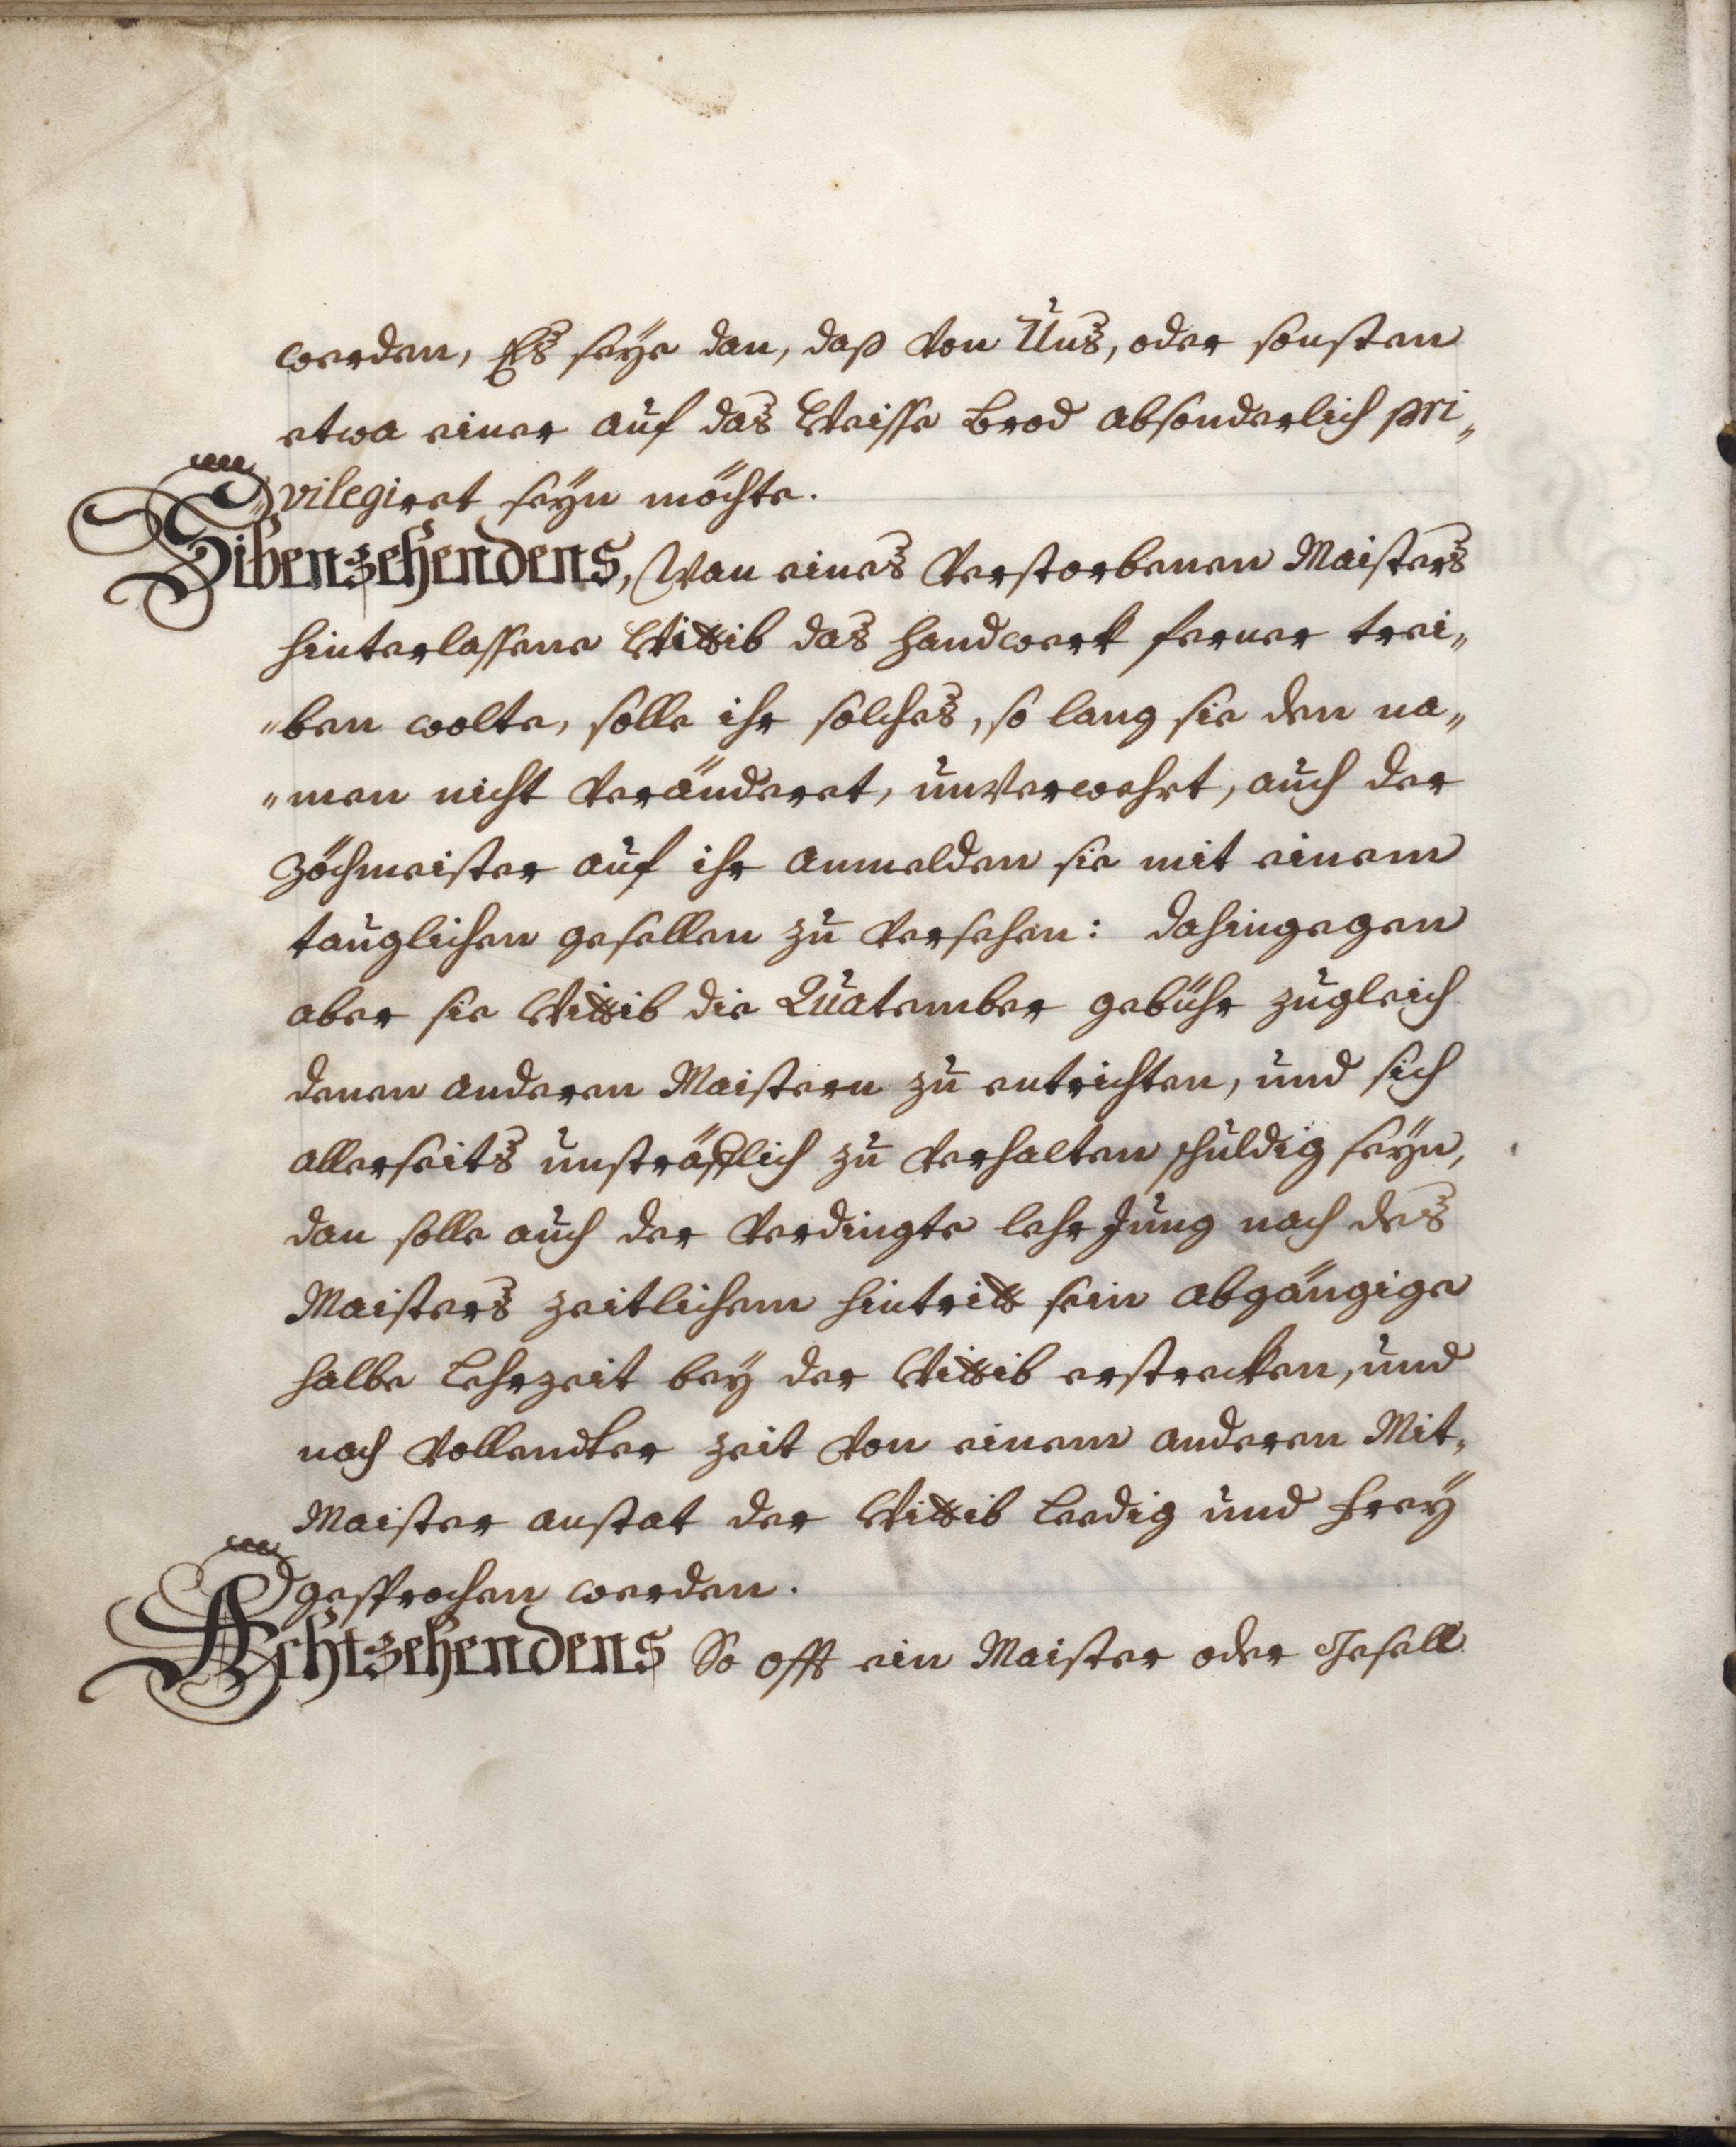 werden, Es seÿe dan, daß von Uns, oder sonsten
etwa einer auf das Weisse Brod absonderlich pri„
„vilegiret seÿn möchte.
Sibenzehendens, Wan eines verstorbenen Maisters
hinterlassene Wittib das Handwerk ferner trei„
„ben wolte, solle ihr solches, so lang sie den na„
„men nicht veränderet, unverwehrt, auch der
Zöchmeister auf ihr anmelden sie mit einem
tauglichen gesellen zu versehen: dahingegen
aber sie Wittib die Quatember gebühr zugleich
denen anderen Maistern zu entrichten, und sich
allerseits unsträfflich zu verhalten schuldig seÿn,
dan solle auch der verdingte lehr Jung nach des
Maisters zeitlichem hintritt sein abgängige
halbe Lehrzeit beÿ der Wittib erstrecken, und
nach vollendter zeit von einem anderen Mit„
Maister anstat der Wittib Leedig und freÿ
gesprochen werden.
Achtzehendens So offt ein Maister oder Gesell